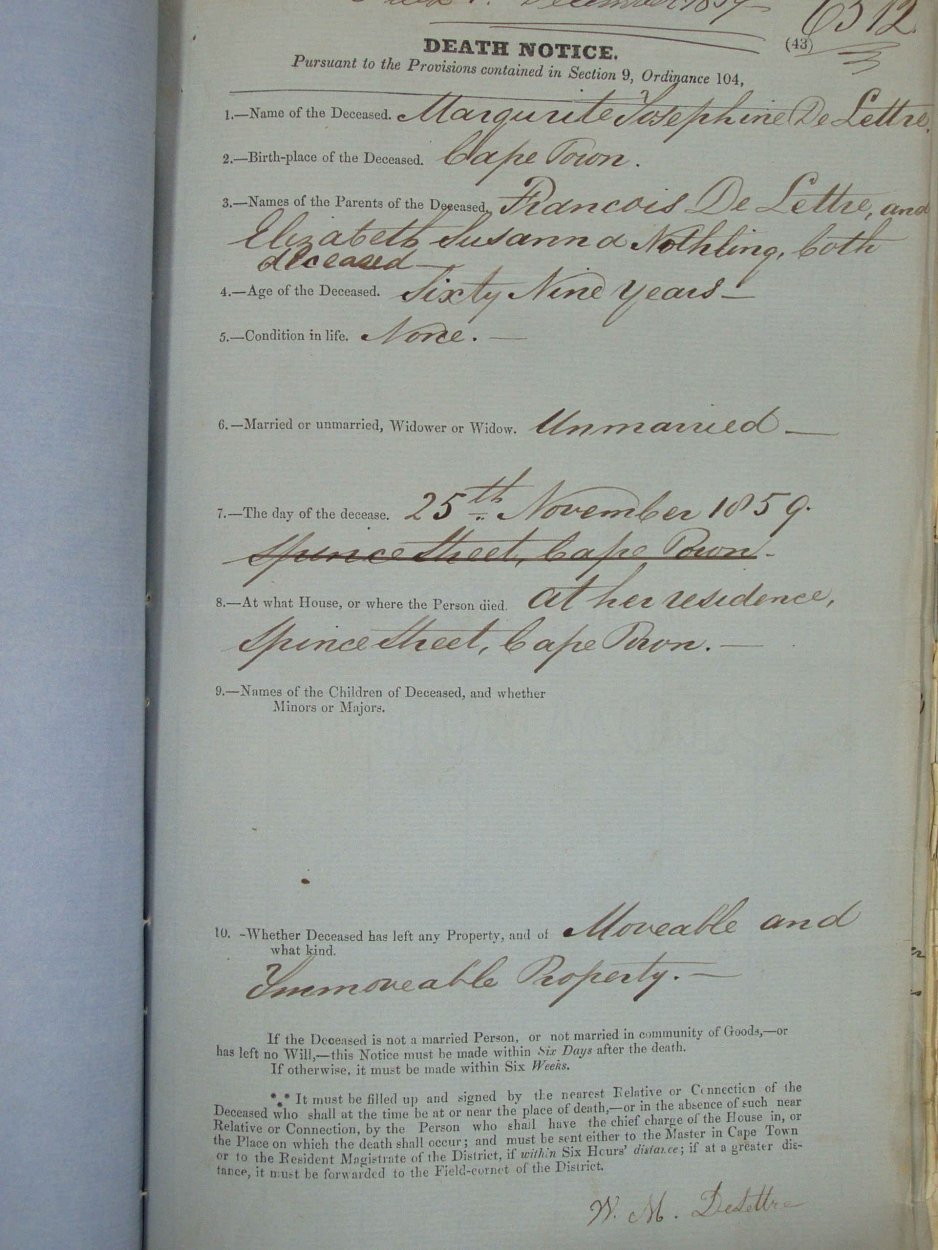 December 1859 6512
(43)
DEATH NOTICE.
Pursuant to the Provisions contained in Section 9, Ordinance 104,
1.—Name of the Deceased. Margurite Josephine De Lettre.
2.—Birth-place of the Deceased. Cape Town.
3.—Names of the Parents of the Deceased, Francois De Lettre, and
Elizabeth Susanna Nothling, both
deceased—
4.—Age of the Deceased. Sixty Nine Years—
5.—Condition in life. None.—
6.—Married or unmarried, Widower or Widow. Unmarried—
7.—The day of the decease. 25th November 1859.
Spence Street, Cape Town-
8.—At what House, or where the Person died. at her residence,
Spince Street, Cape Town.—
9.—Names of the Children of Deceased, and whether
Minors or Majors.
10. -Whether Deceased has left any Property, and of Moveable and
what kind.
Immoveable Property.—
If the Deceased is not a married Person, or not married in community of Goods,—or
has left no Will,—this Notice must be made within Six Days after the death.
If otherwise, it must be made within Six Weeks.
*** It must be filled up and signed by the nearest Relative or Connection of the
Deceased who shall at the time be at or near the place of death,—or in the absence of such near
Relative or Connection, by the Person who shall have the chief charge of the House in, or
the Place on which the death shall occur; and must be sent either to the Master in Cape Town
or to the Resident Magistrate of the District, if within Six Hours' distance; if at a greater dis-
tance, it must be forwarded to the Field-cornet of the District.
W. M. DeLettre